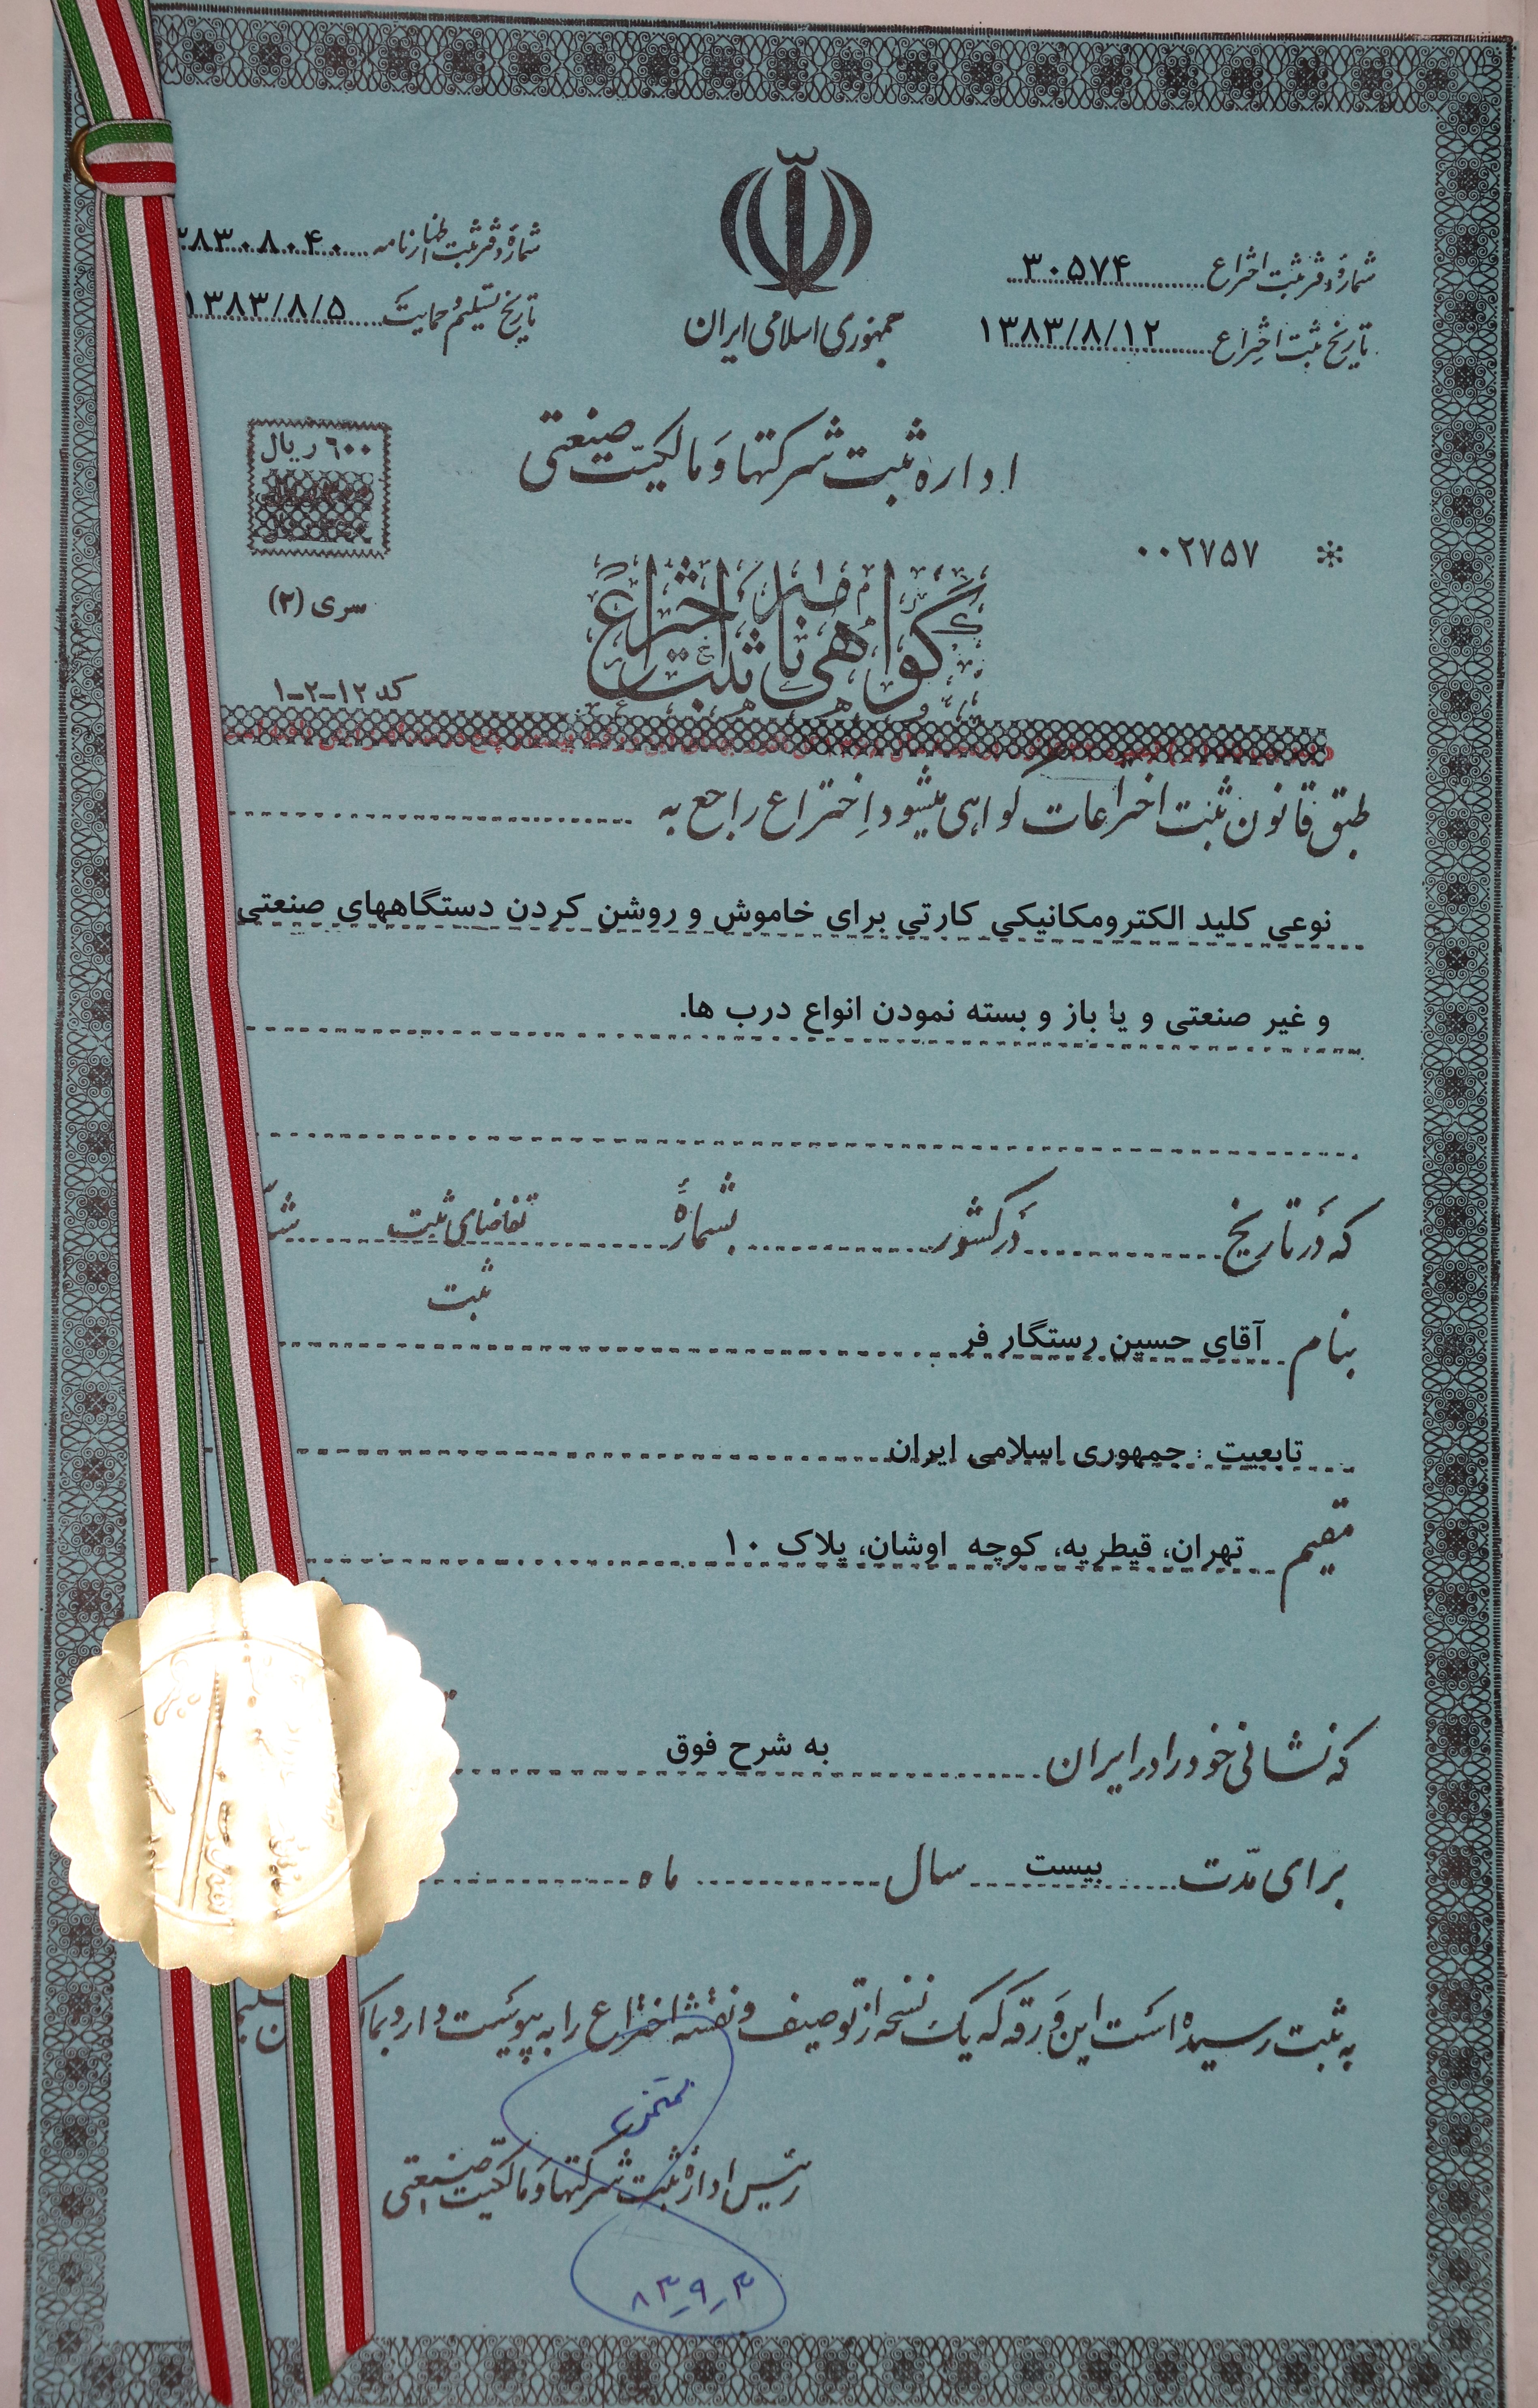 شماره دفتر ثبت اختراع ۳۰۵۷۴
تاریخ ثبت اختراع ۱۳۸۳/۸/۱۲
جمهوری اسلامی ایران
شماره دفتر ثبت اظهارنامه ۳۸۳۰۸۰۴۰
تاریخ تسلیم و حمایت ۱۳۸۳/۸/۵
اداره ثبت شرکتها و مالکیت صنعتی
۶۰۰ ریال
* ۰۰۲۷۵۷
سری (۲)
گواهی نامه ثبت اختراع
کد ۱۲-۲-۱
طبق قانون ثبت اختراعات گواهی میشود اختراع راجع به
نوعی کلید الکترومکانیکی کارتی برای خاموش و روشن کردن دستگاههای صنعتی
و غیر صنعتی و یا باز و بسته نمودن انواع درب ها.
که در تاریخ در کشور بشماره تقاضای ثبت
ثبت
بنام آقای حسین رستگار فر
تابعیت : جمهوری اسلامی ایران
مقیم تهران، قیطریه، کوچه اوشان، پلاک ۱۰
که نشانی خود را در ایران به شرح فوق
برای مدت بیست سال ماه
به ثبت رسیده است این ورقه که یک نسخه از توصیف و نقشه اختراع را به پیوست دارد
رئیس اداره ثبت شرکتها و مالکیت صنعتی
۸۳-۹-۳